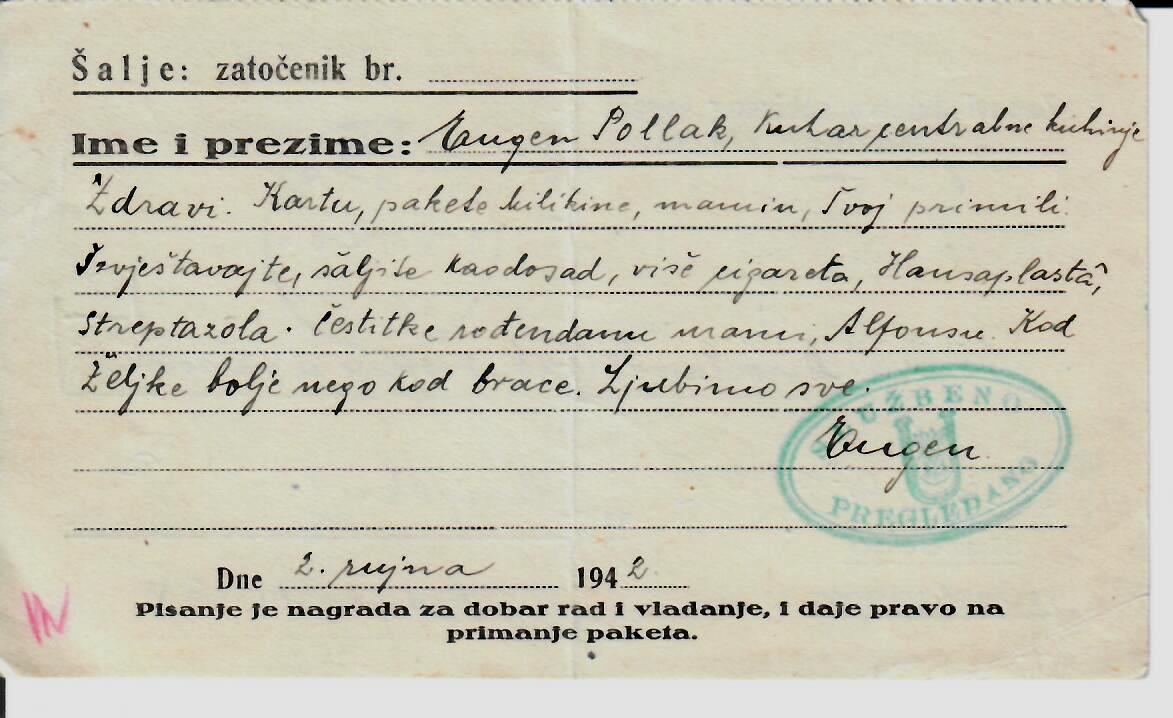 Šalje: zatočenik br.
Ime i prezime: Eugen Pollak, kuhar centralne kuhinje
Zdravi. Kartu, pakete milikine, mamin, Tvoj primili.
Izvještavajte, šaljite kaodosad, više cigareta, Hansaplasta,
Streptazola. Čestitke rođendanu mami, Alfonsu. Kod
Željke bolje nego kod brace. Ljubimo sve.
Eugen
SLUŽBENO
PREGLEDANO
Dne 2. rujna 1942
Pisanje je nagrada za dobar rad i vladanje, i daje pravo na
primanje paketa.